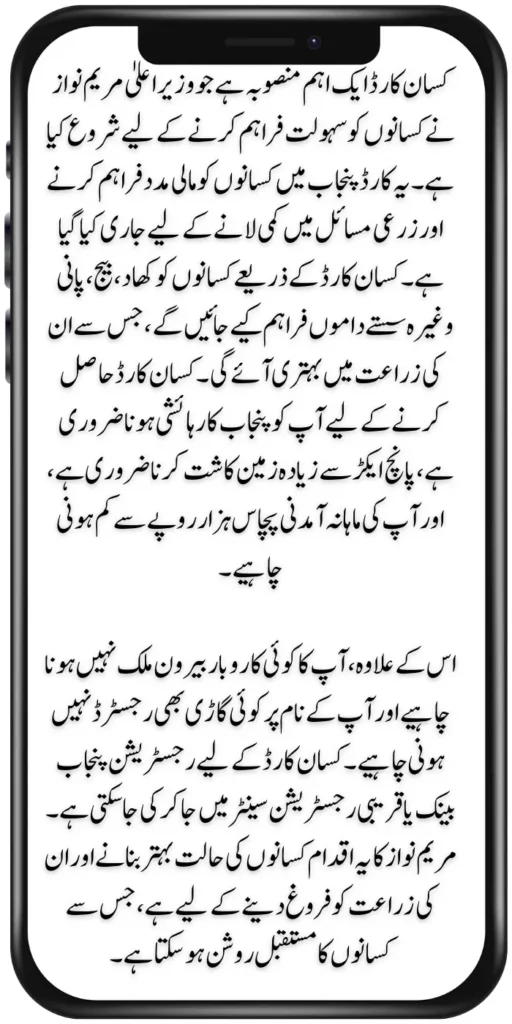 کسان کارڈ ایک اہم منصوبہ ہے جو وزیراعلیٰ مریم نواز
نے کسانوں کو سہولت فراہم کرنے کے لیے شروع کیا
ہے۔ یہ کارڈ پنجاب میں کسانوں کو مالی مدد فراہم کرنے
اور زرعی مسائل میں کمی لانے کے لیے جاری کیا گیا
ہے۔ کسان کارڈ کے ذریعے کسانوں کو کھاد، بیج، پانی
وغیرہ سستے داموں فراہم کیے جائیں گے، جس سے ان
کی زراعت میں بہتری آئے گی۔ کسان کارڈ حاصل
کرنے کے لیے آپ کو پنجاب کا رہائشی ہونا ضروری
ہے، پانچ ایکڑ سے زیادہ زمین کاشت کرنا ضروری ہے،
اور آپ کی ماہانہ آمدنی پچاس ہزار روپے سے کم ہونی
چاہیے۔
اس کے علاوہ، آپ کا کوئی کاروبار بیرون ملک نہیں ہونا
چاہیے اور آپ کے نام پر کوئی گاڑی بھی رجسٹرڈ نہیں
ہونی چاہیے۔ کسان کارڈ کے لیے رجسٹریشن پنجاب
بینک یا قریبی رجسٹریشن سینٹر میں جا کر کی جا سکتی ہے۔
مریم نواز کا یہ اقدام کسانوں کی حالت بہتر بنانے اور ان
کی زراعت کو فروغ دینے کے لیے ہے، جس سے
کسانوں کا مستقبل روشن ہو سکتا ہے۔